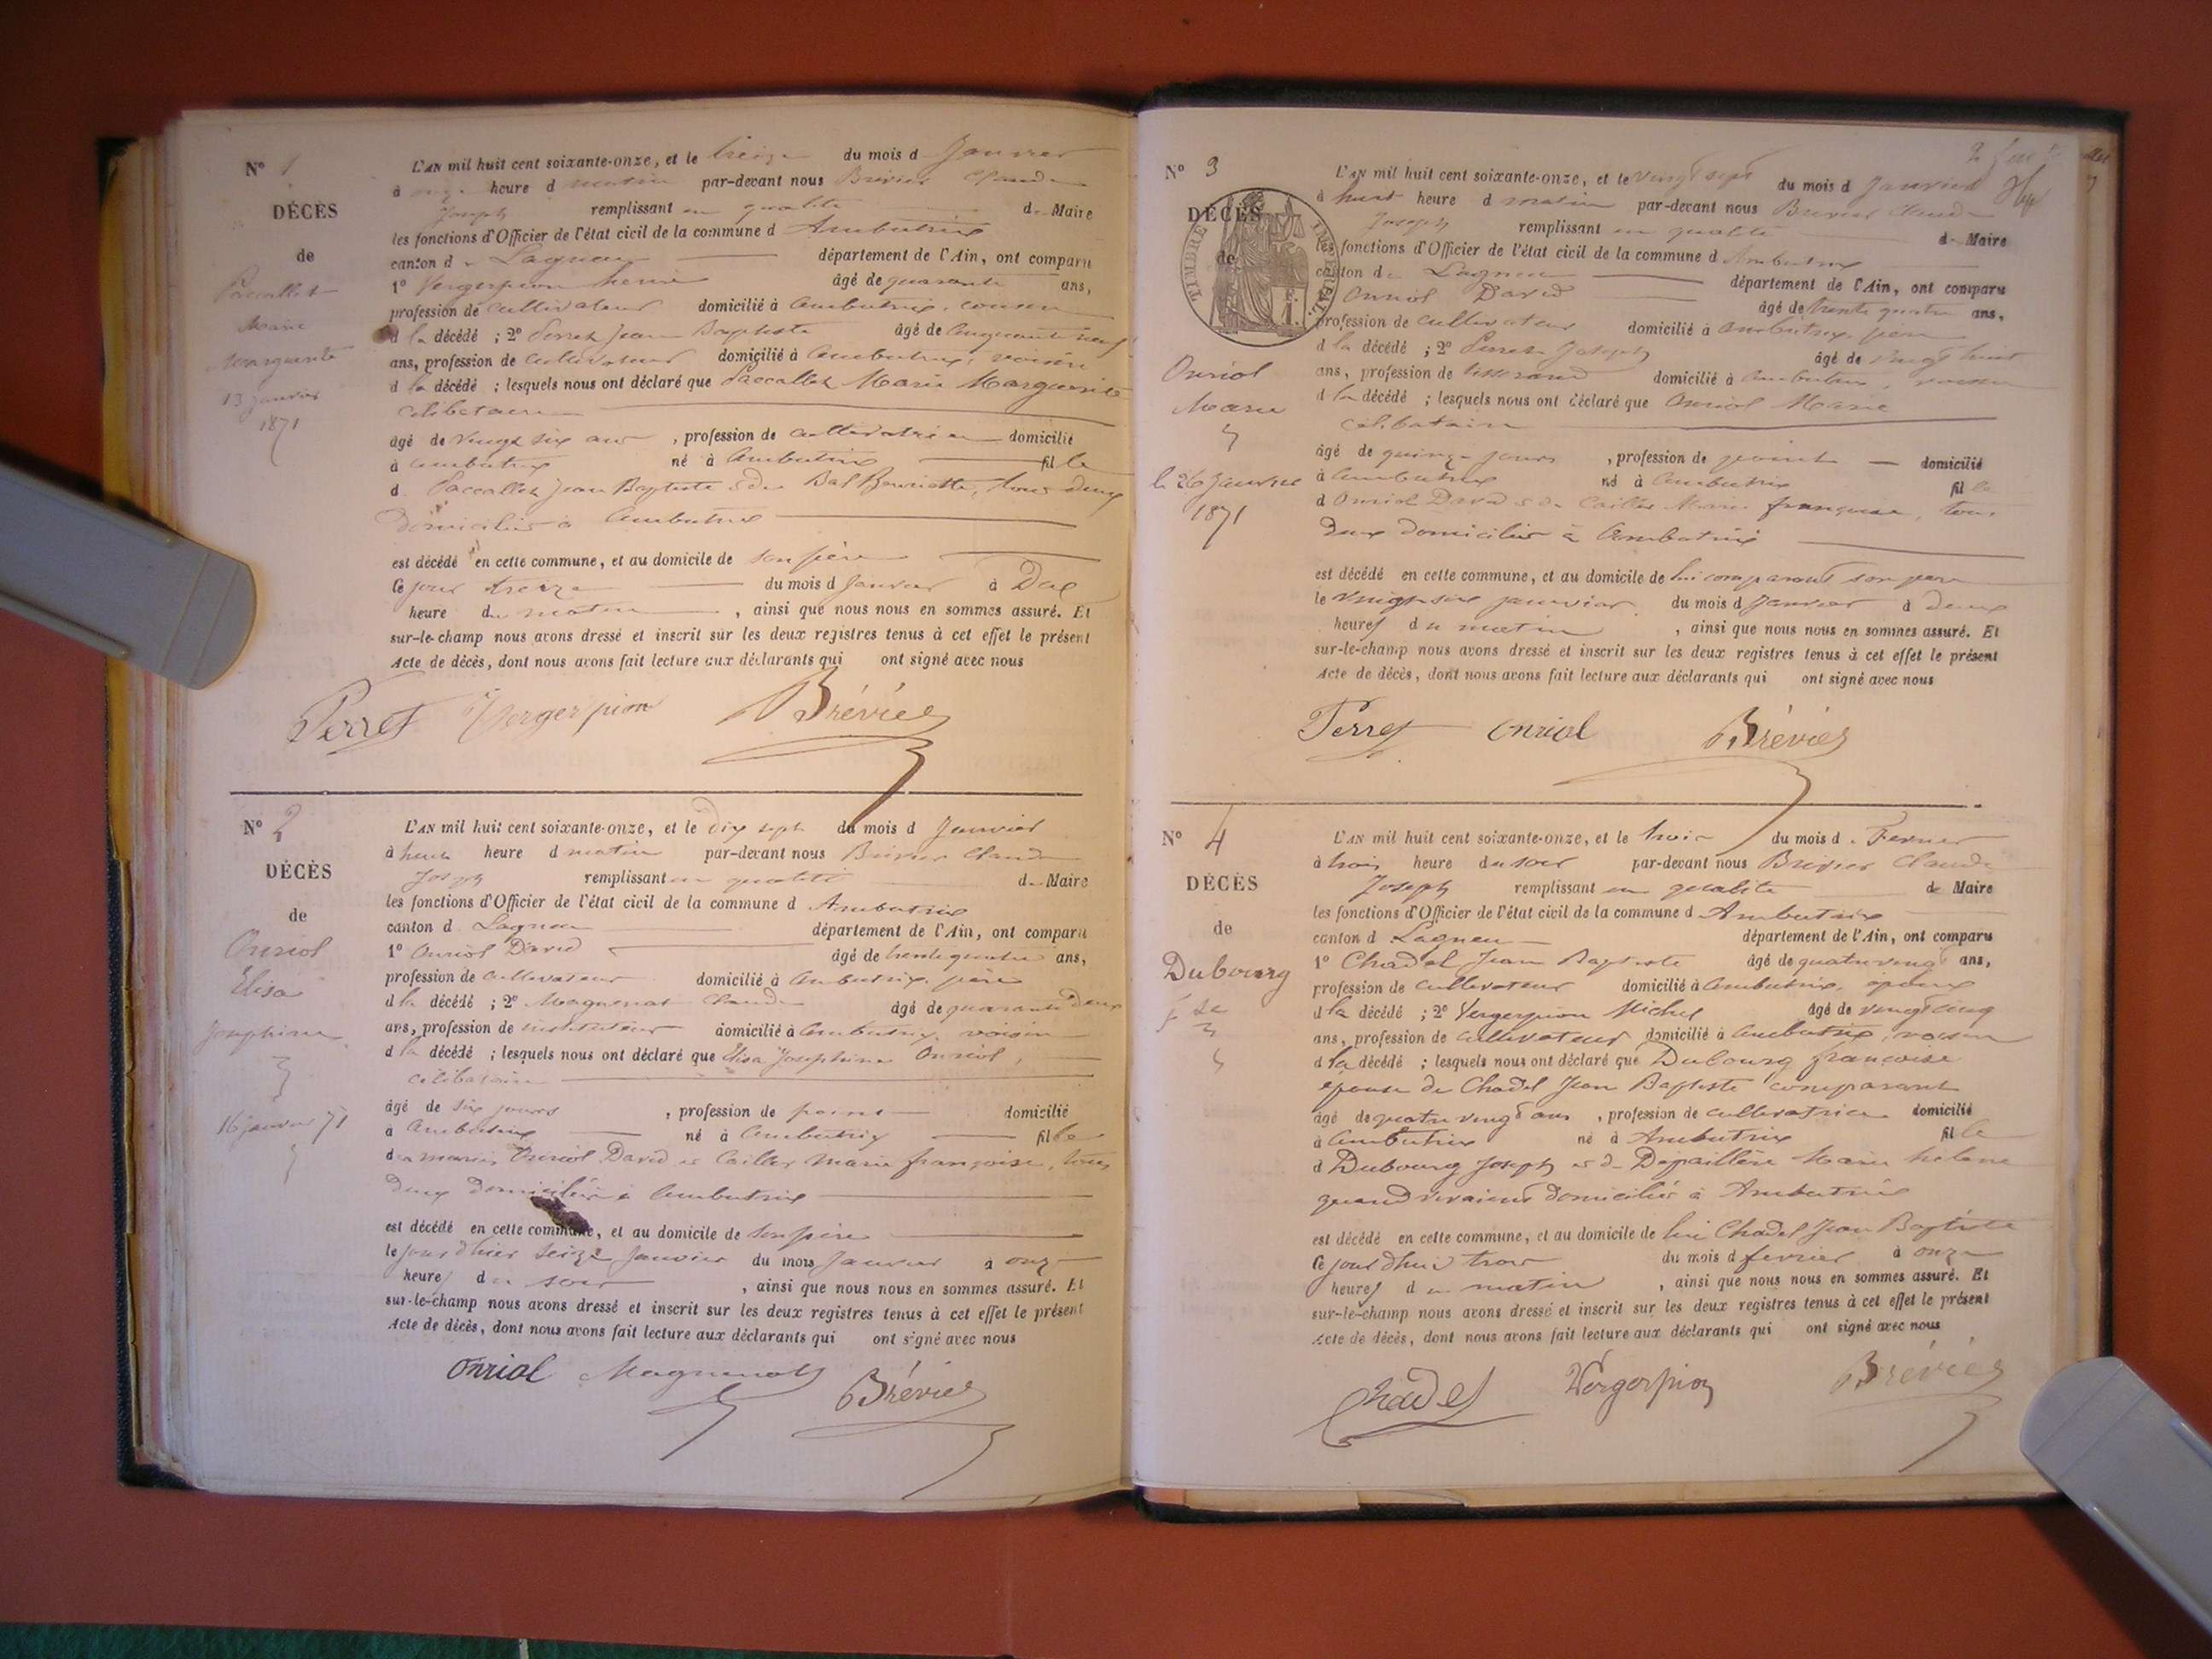 N° 1
DÉCÈS
de
Paccallet
Marie
Marguerite
13 janvier
1871
L'AN mil huit cent soixante-onze, et le treize du mois d Janvier
à onze heure d matin par-devant nous Brévier Claude
Joseph remplissant en qualité de Maire
les fonctions d'Officier de l'état civil de la commune d Ambutrix
canton d Lagnieu département de l'Ain, ont comparu
1° Vergerpion henri âgé de quarante ans,
profession de cultivateur domicilié à ambutrix, cousin
d la décédé ; 2° Perret Jean Baptiste âgé de cinquante neuf
ans, profession de cultivateur domicilié à ambutrix, voisin
d la décédé ; lesquels nous ont déclaré que Paccallet Marie Marguerite
célibataire
âgé de vingt six ans , profession de cultivatrice domicilié
à ambutrix né à Ambutrix fille
d Paccallet Jean Baptiste & de Bal henriette, tous deux
domiciliés à Ambutrix
est décédé en cette commune, et au domicile de son père
Ce jour treize du mois d Janvier à Dix
heure du matin , ainsi que nous nous en sommes assuré. Et
sur-le-champ nous avons dressé et inscrit sur les deux registres tenus à cet effet le présent
Acte de décès, dont nous avons fait lecture aux déclarants qui ont signé avec nous
Perret Vergerpion Brévier
N° 2
DÉCÈS
de
Onriol
Elisa
Josephine
16 janvier 71
L'AN mil huit cent soixante-onze, et le dix sept du mois d Janvier
à heure d matin par-devant nous Brévier Claude
Joseph remplissant en qualité de Maire
les fonctions d'Officier de l'état civil de la commune d Ambutrix
canton d Lagnieu département de l'Ain, ont comparu
1° Onriol David âgé de trente quatre ans,
profession de cultivateur domicilié à ambutrix, père
d la décédé ; 2° Magnenot Claude âgé de quarante deux
ans, profession de instituteur domicilié à ambutrix, voisin
d la décédé ; lesquels nous ont déclaré que Elisa Josephine Onriol,
célibataire
âgé de six jours , profession de point domicilié
à Ambutrix né à Ambutrix fille
d Onriol David et Caillet Marie françoise, tous
deux domiciliés à Ambutrix
est décédé en cette commune, et au domicile de son père
le jour d'hier seize janvier du mois Janvier à onze
heure du soir , ainsi que nous nous en sommes assuré. Et
sur-le-champ nous avons dressé et inscrit sur les deux registres tenus à cet effet le présent
Acte de décès, dont nous avons fait lecture aux déclarants qui ont signé avec nous
Onriol Magnenot Brévier
N° 3
DÉCÈS
de
TIMBRE IMPÉRIAL
1 F.
Onriol
Marie
le 26 Janvier
1871
L'AN mil huit cent soixante-onze, et le vingt sept du mois d Janvier
à huit heure d matin par-devant nous Brévier Claude
Joseph remplissant en qualité de Maire
les fonctions d'Officier de l'état civil de la commune d Ambutrix
canton de Lagnieu département de l'Ain, ont comparu
Onriol David âgé de trente quatre ans,
profession de cultivateur domicilié à ambutrix, père
d la décédé ; 2° Perret Joseph âgé de vingt huit
ans, profession de tisserand domicilié à ambutrix, voisin
d la décédé ; lesquels nous ont déclaré que Onriol Marie
célibataire
âgé de quinze jours , profession de point domicilié
à ambutrix né à Ambutrix fille
d Onriol David & de Caillet Marie françoise, tous
deux domiciliés à Ambutrix
est décédé en cette commune, et au domicile de lui comparant son père
le vingt six janvier du mois d Janvier à deux
heures du matin , ainsi que nous nous en sommes assuré. Et
sur-le-champ nous avons dressé et inscrit sur les deux registres tenus à cet effet le présent
Acte de décès, dont nous avons fait lecture aux déclarants qui ont signé avec nous
Perret onriol Brévier
N° 4
DÉCÈS
de
Dubourg
fse
L'AN mil huit cent soixante-onze, et le trois du mois d Fevrier
à trois heure du soir par-devant nous Brévier Claude
Joseph remplissant en qualité de Maire
les fonctions d'Officier de l'état civil de la commune d Ambutrix
canton d Lagnieu département de l'Ain, ont comparu
1° Chadel Jean Baptiste âgé de quatre vingt ans,
profession de cultivateur domicilié à ambutrix, époux
d la décédé ; 2° Vergerpion Michel âgé de vingt cinq
ans, profession de cultivateur domicilié à ambutrix, voisin
d la décédé ; lesquels nous ont déclaré que Dubourg françoise
épouse de Chadel Jean Baptiste comparant
âgé de quatre vingt ans , profession de cultivatrice domicilié
à ambutrix né à Ambutrix fille
d Dubourg Joseph et de Dépaillère Marie hélène
quand vivaient domiciliés à Ambutrix
est décédé en cette commune, et au domicile de lui Chadel Jean Baptiste
Ce jourd'hui trois du mois d fevrier à onze
heures du matin , ainsi que nous nous en sommes assuré. Et
sur-le-champ nous avons dressé et inscrit sur les deux registres tenus à cet effet le présent
Acte de décès, dont nous avons fait lecture aux déclarants qui ont signé avec nous
Chadel Vergerpion Brévier